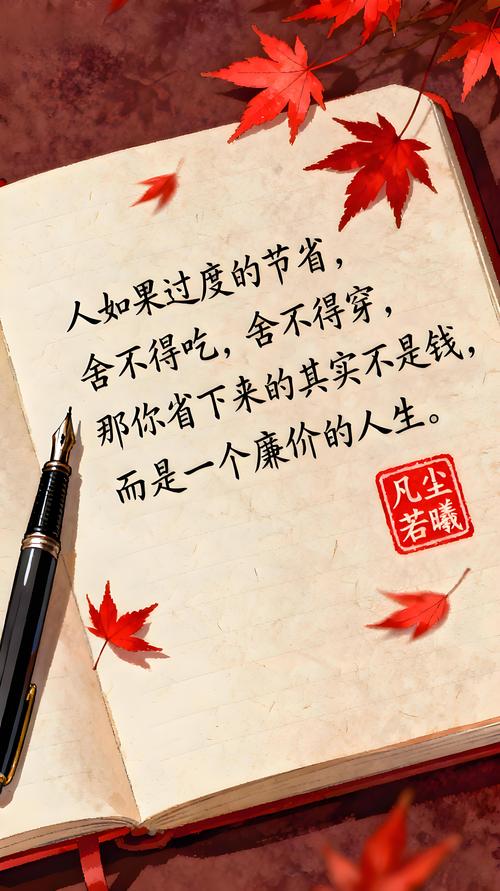 人如果过度的节省，
舍不得吃，舍不得穿，
那你省下来的其实不是钱，
而是一个廉价的人生。
凡尘
若曦